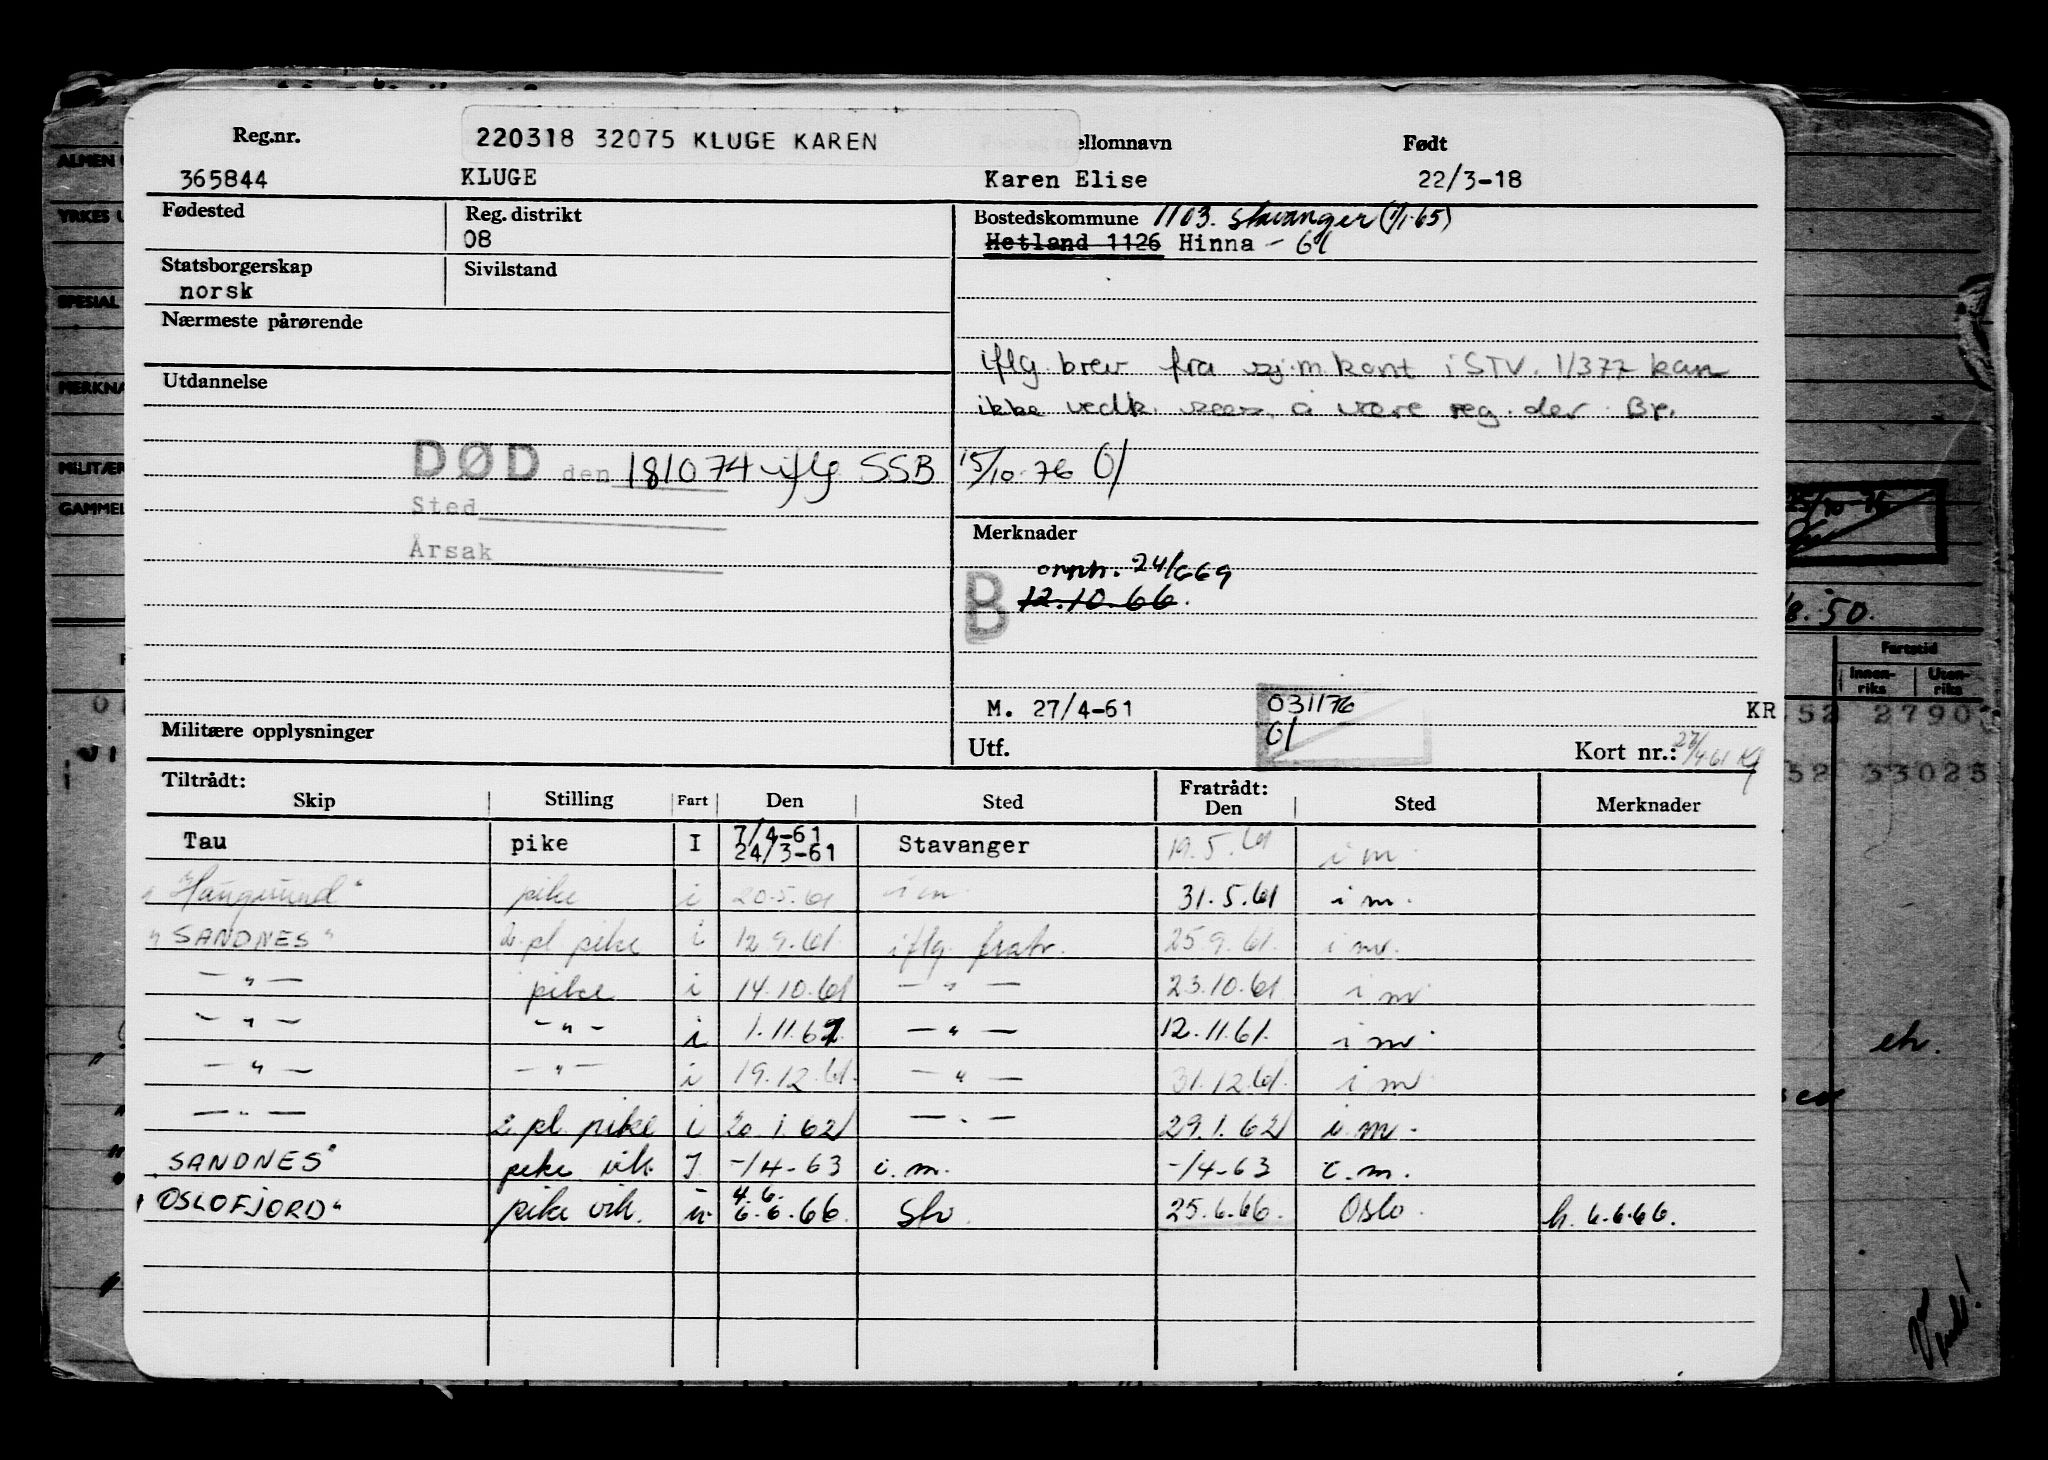 Reg.nr.
220318 32075 KLUGE KAREN
ellomnavn
Født
365844
KLUGE
Karen Elise
22/3-18
Fødested
Reg. distrikt
08
Bostedskommune 1103. Stavanger (1/1-65)
Hetland 1126 Hinna - 61
Statsborgerskap
norsk
Sivilstand
Nærmeste pårørende
iflg. brev fra sj.m.kont i STV. 1/377 kan
ikke vedk. sees å være reg. der. Br.
Utdannelse
DØD den 181074 iflg SSB 15/10-76 Ol
Sted
Årsak
Merknader
24/669
B 12.10.66.
M. 27/4-61
031176
Ol
KR
Militære opplysninger
Utf.
Kort nr.: 27/4 61
Tiltrådt:
Skip Stilling Fart Den Sted
Fratrådt:
Den Sted Merknader
Tau pike I 7/4-61 24/3-61 Stavanger 19.5.61 i m.
"Haugesund" pike i 20.5.61 i m. 31.5.61 i m.
"SANDNES" 2. pl pike i 12.9.61. iflg. fratr. 25.9.61. i m.
— " — pike i 14.10.61 — " — 23.10.61 i m.
— " — — " — i 1.11.61. — " — 12.11.61. i m.
— " — — " — i 19.12.61. — " — 31.12.61. i m.
— " — 2. pl. pike i 20.1.62 — " — 29.1.62 i m.
"SANDNES" pike vik. I. -/4-63 i.m. -/4-63 i.m.
"OSLOFJORD" pike vik. u. 4.6. 6.6.66. Stv. 25.6.66. Oslo. h. 6.6.66.
ALMEN
YRKES U
SPESIAL
MERKNA
MILITÆR
GAMMEL
/8.-50.
Fartstid
Innen-
riks
Uten-
riks
52 2790
52 33025
eh.